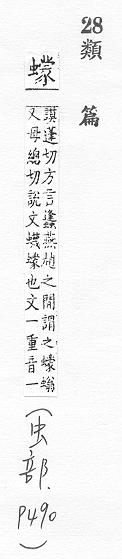 28 類篇
蠓
謨蓬切方言蠭燕趙之閒謂之蠓螉
又母總切說文蠛蠓也文一重音一
(虫部.P490)